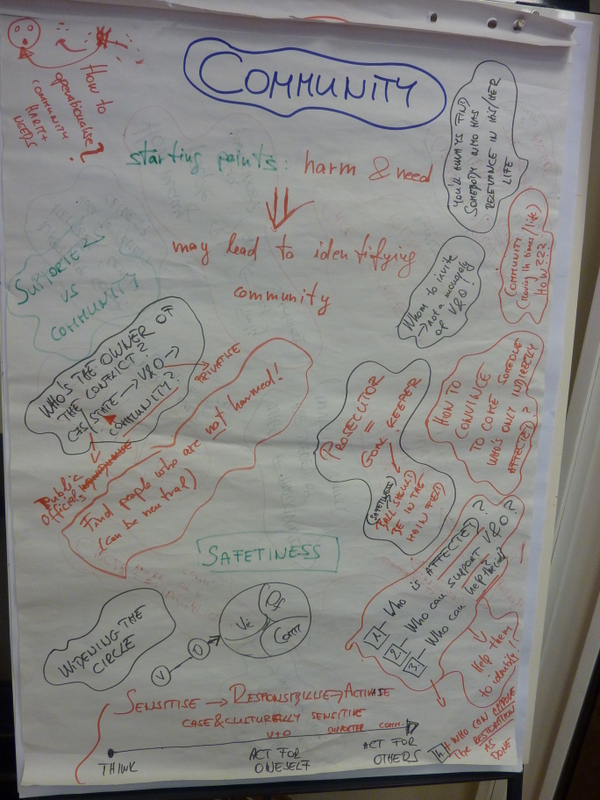 COMMUNITY
How to
operationalise
COMMUNITY
HARM +
NEEDS
?
starting points: harm & need
may lead to identifying
community
YOU'LL ALWAYS FIND
SOMEBODY WHO HAS
RELEVANCE IN HIS/HER
LIFE
COMMUNITY
HOW???
Whom to invite
→ not a monopoly
of V&O!
SUPPORTER
VS
COMMUNITY
WHO'S THE OWNER OF
THE CONFLICT?
CJS/STATE → V&O →
COMMUNITY?
PRIVATISE
Public
officials
Find people who are not harmed!
(can be neutral)
PROSECUTOR
=
GOAL KEEPER
(SAFETINESS)
BALL SHOULD
BE IN THE
MAIN FIELD
HOW TO
CONVINCE
TO COME SOMEONE
WHO'S ONLY INDIRECTLY
AFFECTED?
SAFETINESS
1 - Who is AFFECTED?
2 - Who can SUPPORT V&O?
3 - Who can help
Help them
to identify!
4 WHO CAN
THE RESTORATION
AS
DONE
WIDENING THE
CIRCLE
V → O →
Vi
Off
Com
SENSITISE → RESPONSIBILISE → ACTIVATE
CASE & CULTURALLY SENSITIVE
V+O SUPPORTER COMM.
THINK
ACT FOR
ONESELF
ACT FOR
OTHERS